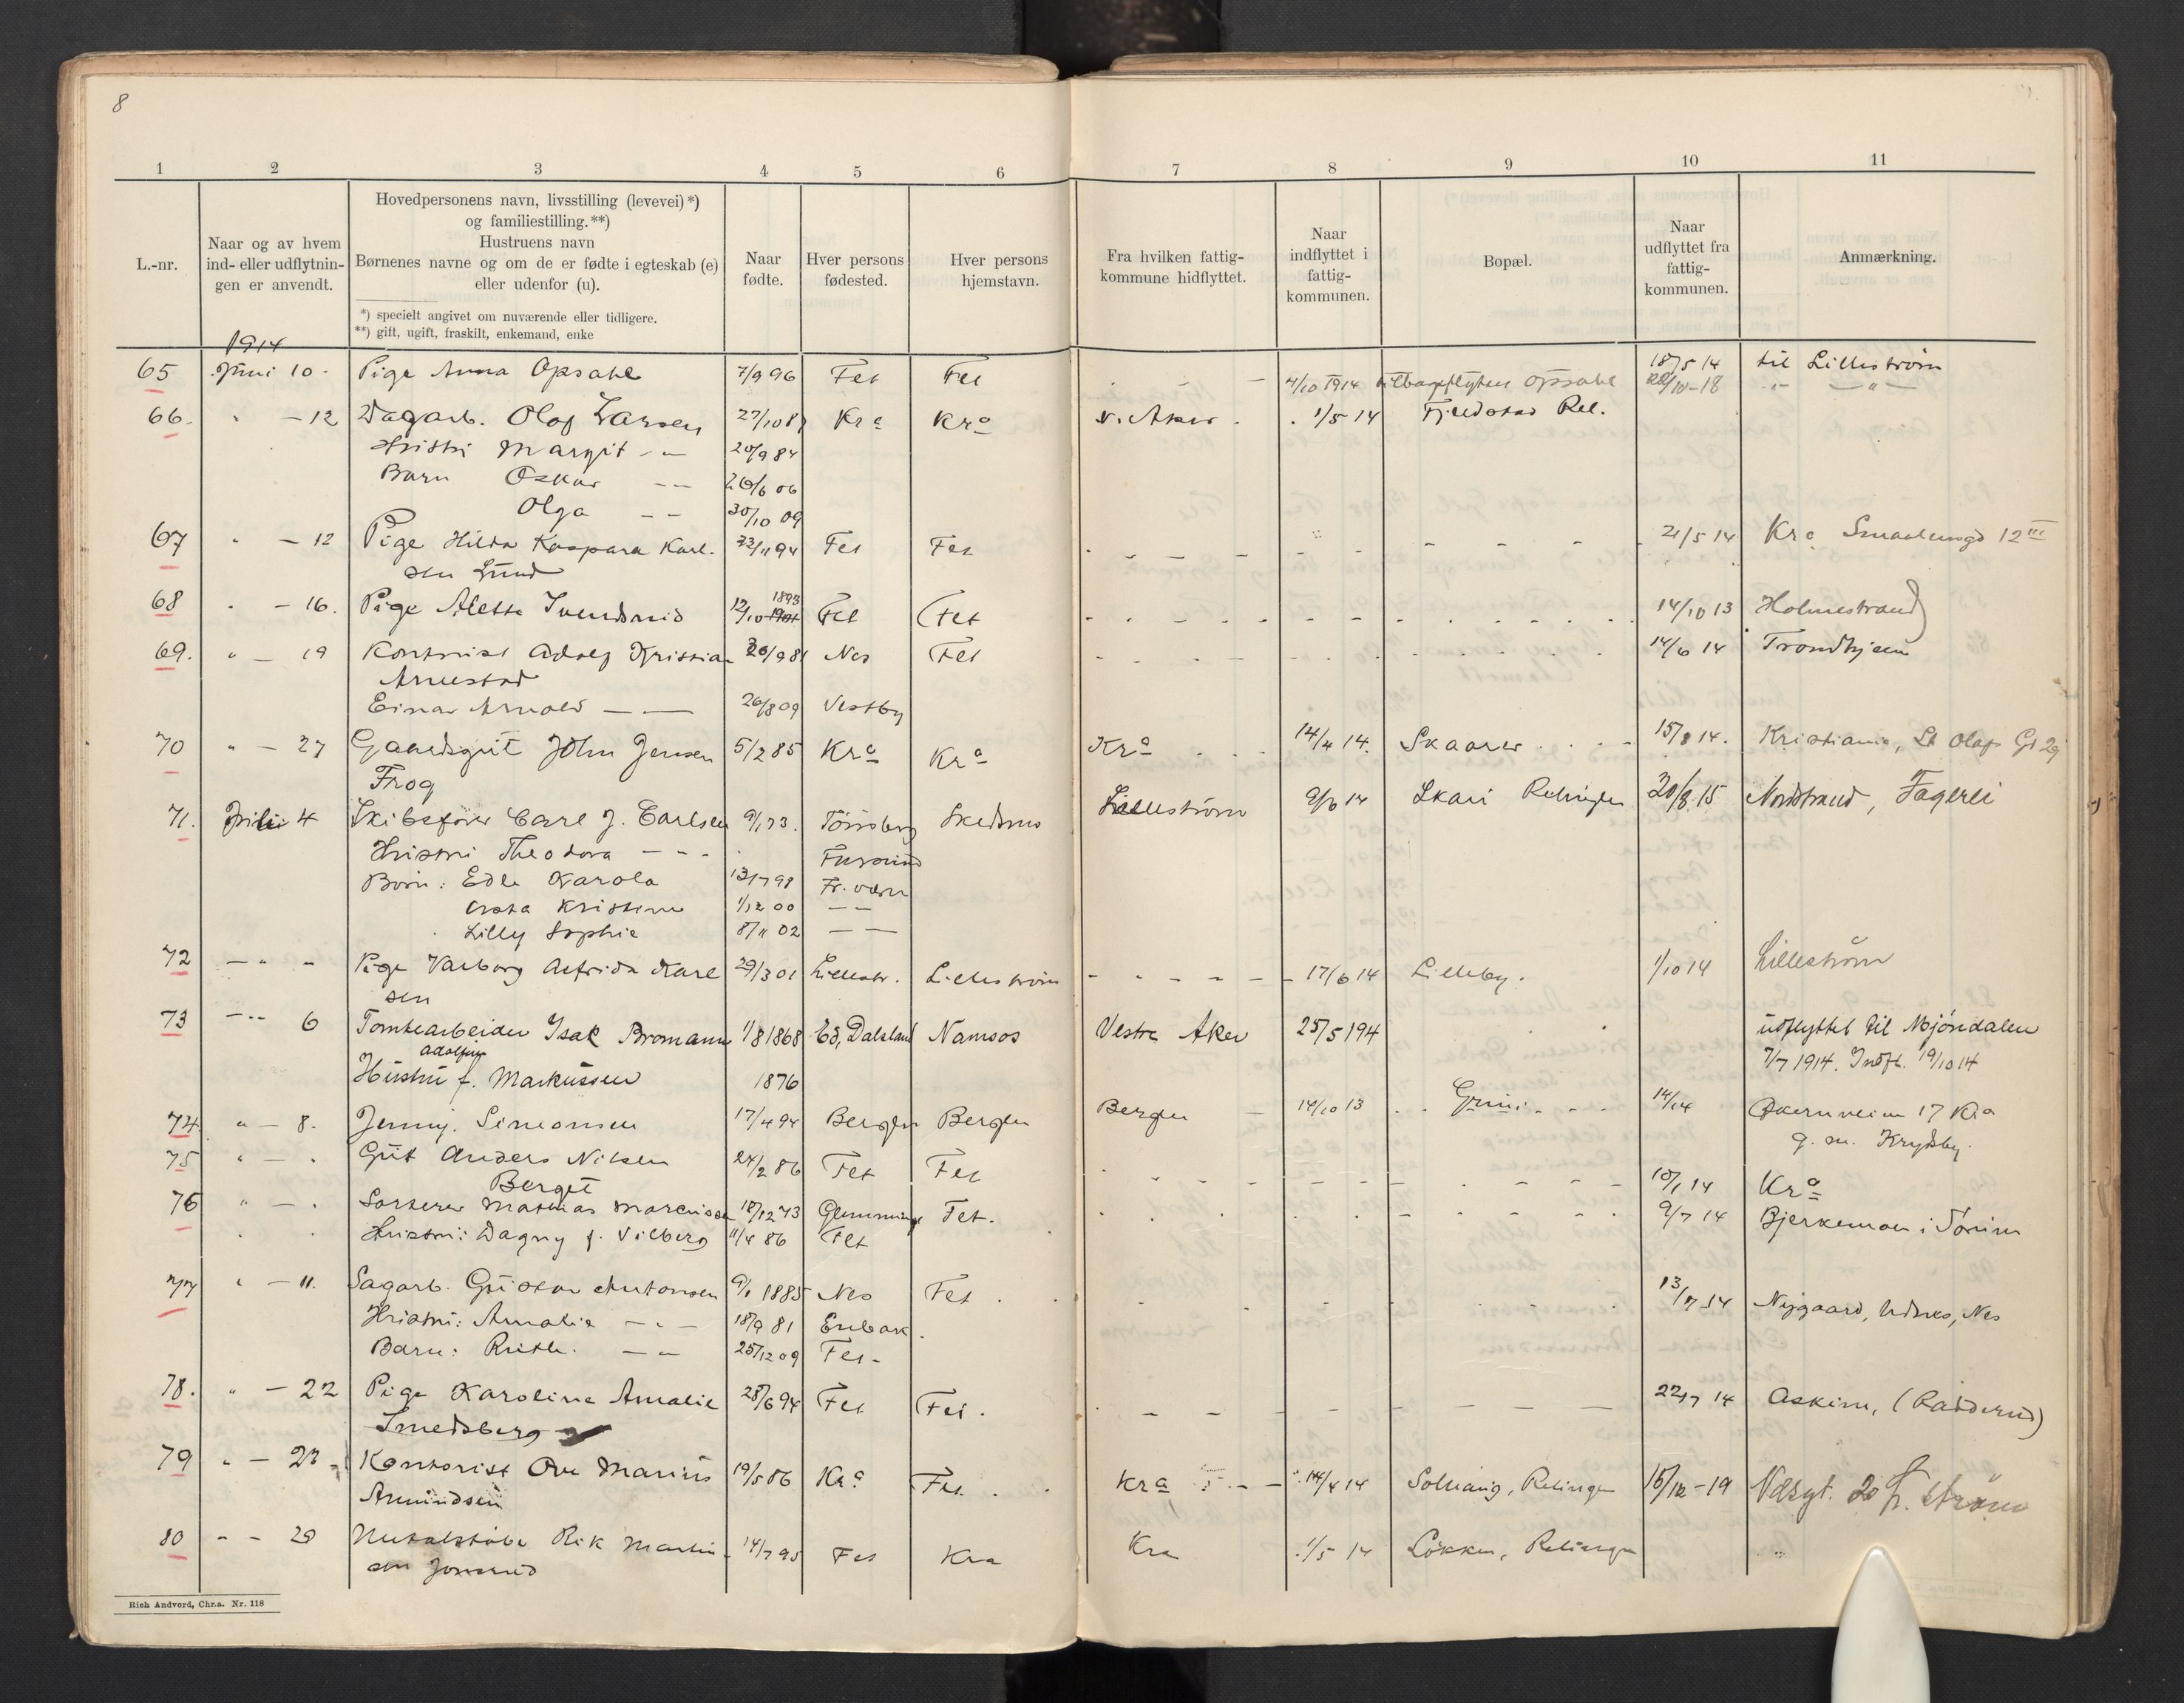 8
1 2 3 4 5 6 7 8 9 10 11
L.-nr.
Naar og av hvem
ind- eller udflytnin-
gen er anvendt.
Hovedpersonens navn, livsstilling (levevei) *)
og familiestilling. **)
Hustruens navn
Børnenes navne og om de er fødte i egteskab (e)
eller udenfor (u).
*) specielt angivet om nuværende eller tidligere.
**) gift, ugift, fraskilt, enkemand, enke
Naar
fødte.
Hver persons
fødested.
Hver persons
hjemstavn.
Fra hvilken fattig-
kommune hidflyttet.
Naar
indflyttet i
fattig-
kommunen.
Bopæl.
Naar
udflyttet fra
fattig-
kommunen.
Anmærkning.
1914
65 Juni 10 - Pige Anna Opsahl 7/9 96 Fet Fet 4/10 1914 tilbageflyttet Opsahl 18/5 14 til Lilleström
/10-18 - " -
66. " - 12 Dagarb. Olaf Larsen 27/10 87 Kra Kra V. Aker 1/5 14 Fjeldstad Rel.
Hustru Margit - " - 20/9 84
Barn Oskar - - 26/6 06
Olga - - 30/10 09
67 " - 12 Pige Hilda Kaspara Karl- 23/11 94 Fet Fet 21/5 14 Kra Smaalensgd 12 III
sen Lund
68 " - 16. Pige Alette Svendsrud 12/10 1893 Fet Fet 14/10 13 Holmestrand
69. " - 19 Kontorist Adolf Kristian 20/9 81 Nes Fet 14/6 14 Trondhjem
Arnestad
Einar Arnold - - 26/8 09 Vestby
70 " - 27 Gaardsgut John Jensen 5/2 85 Kra Kra Kra 14/4 14. Skaarer 15/8 14. Kristiania, St Olafs Gt 29
Frog
71. Juli 4 Skibsfører Carl J. Carlsen 9/1 73. Tönsberg Skedsmo Lilleström 9/6 14 Skari Relingen 20/8 15 Nordstrand, Fagerli
Hustru Theodora - - -
Børn: Edle Karola 13/7 98 Fr.værn
Asta Kristine 1/12 00 - -
Lilly Sophie 8/11 02 - -
72 - " - Pige Valborg Alfrida Karl 29/3 01 Lillestr. Lilleström 17/6 14 Lilleby. 1/10 14 Lilleström
sen
73 - " - 6 Tomtearbeider Isak Bromann 1/8 1868 Ed, Dalsland Namsos Vestre Aker 25/5 194 udflyttet til Mjöndalen
Adolfine
Hustru f. Markussen 1876 7/7 1914. Indfl. 19/10 14
74. " - 8. Jenny. Simonsen 17/4 94 Bergen Bergen Bergen 14/10 13 Grini 14/14 Akersveien 17 Kra
g. m. Krydsby.
75 " - " Gut Anders Nilsen 24/2 86 Fet Fet 10/1 14 Kra
Berget
76 " - " Sorterer Mathias Marcussen 18/12 73 Glemminge Fet. 9/7 14 Bjerkemoen i Sörum
Hustru: Dagny f. Vilberg 11/4 86 Fet
77 " - 11. Sagarb. Gustav Antonsen 9/1 1885 Nes Fet 13/7 14 Nygaard, Udnes, Nes
Hustru: Amalie - " - 18/9 81 Enbak
Barn: Ruth. - " - 25/12 09 Fet -
78. " - 22 Pige Karoline Amalie 28/6 94 Fet Fet. 22/7 14 Askim, (Radderud)
Smedsberg
79 " - 23 - Kontorist Ove Marius 19/5 86 Kra Fet Kra 14/4 14 Solhaug, Relingen 15/12 - 19
Amundsen
80 - - 28 14/7 95 Fet Kra Kra 1/5 14 Løkken, Relingen
Rich Andvord, Chr.a. Nr. 118